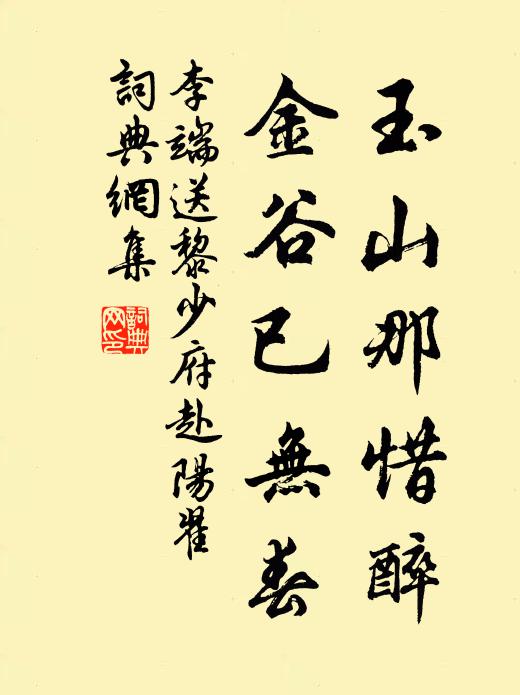 玉山那惜醉
金谷已無春
李端送黎少府赴陽翟
詞典網集
詞典網印